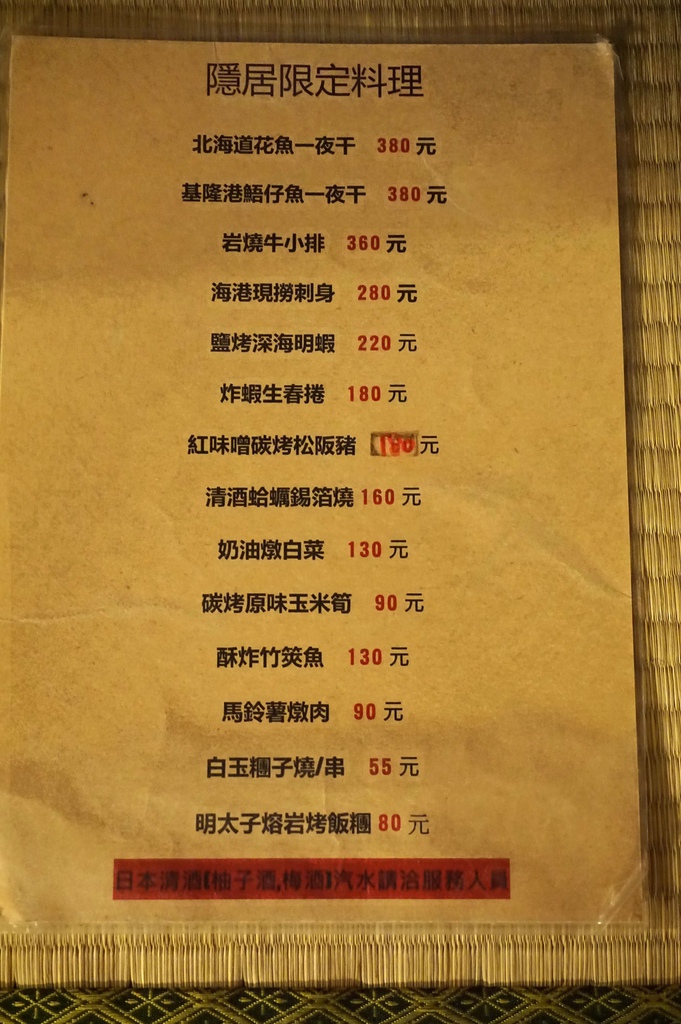 隱居限定料理
北海道花魚一夜干 380 元
基隆港鯃仔魚一夜干 380 元
岩燒牛小排 360 元
海港現撈刺身 280 元
鹽烤深海明蝦 220 元
炸蝦生春捲 180 元
紅味噌碳烤松阪豬 元
清酒蛤蠣錫箔燒 160 元
奶油燉白菜 130 元
碳烤原味玉米筍 90 元
酥炸竹筴魚 130 元
馬鈴薯燉肉 90 元
白玉糰子燒/串 55 元
明太子熔岩烤飯糰 80 元
日本清酒(柚子酒,梅酒)汽水請洽服務人員